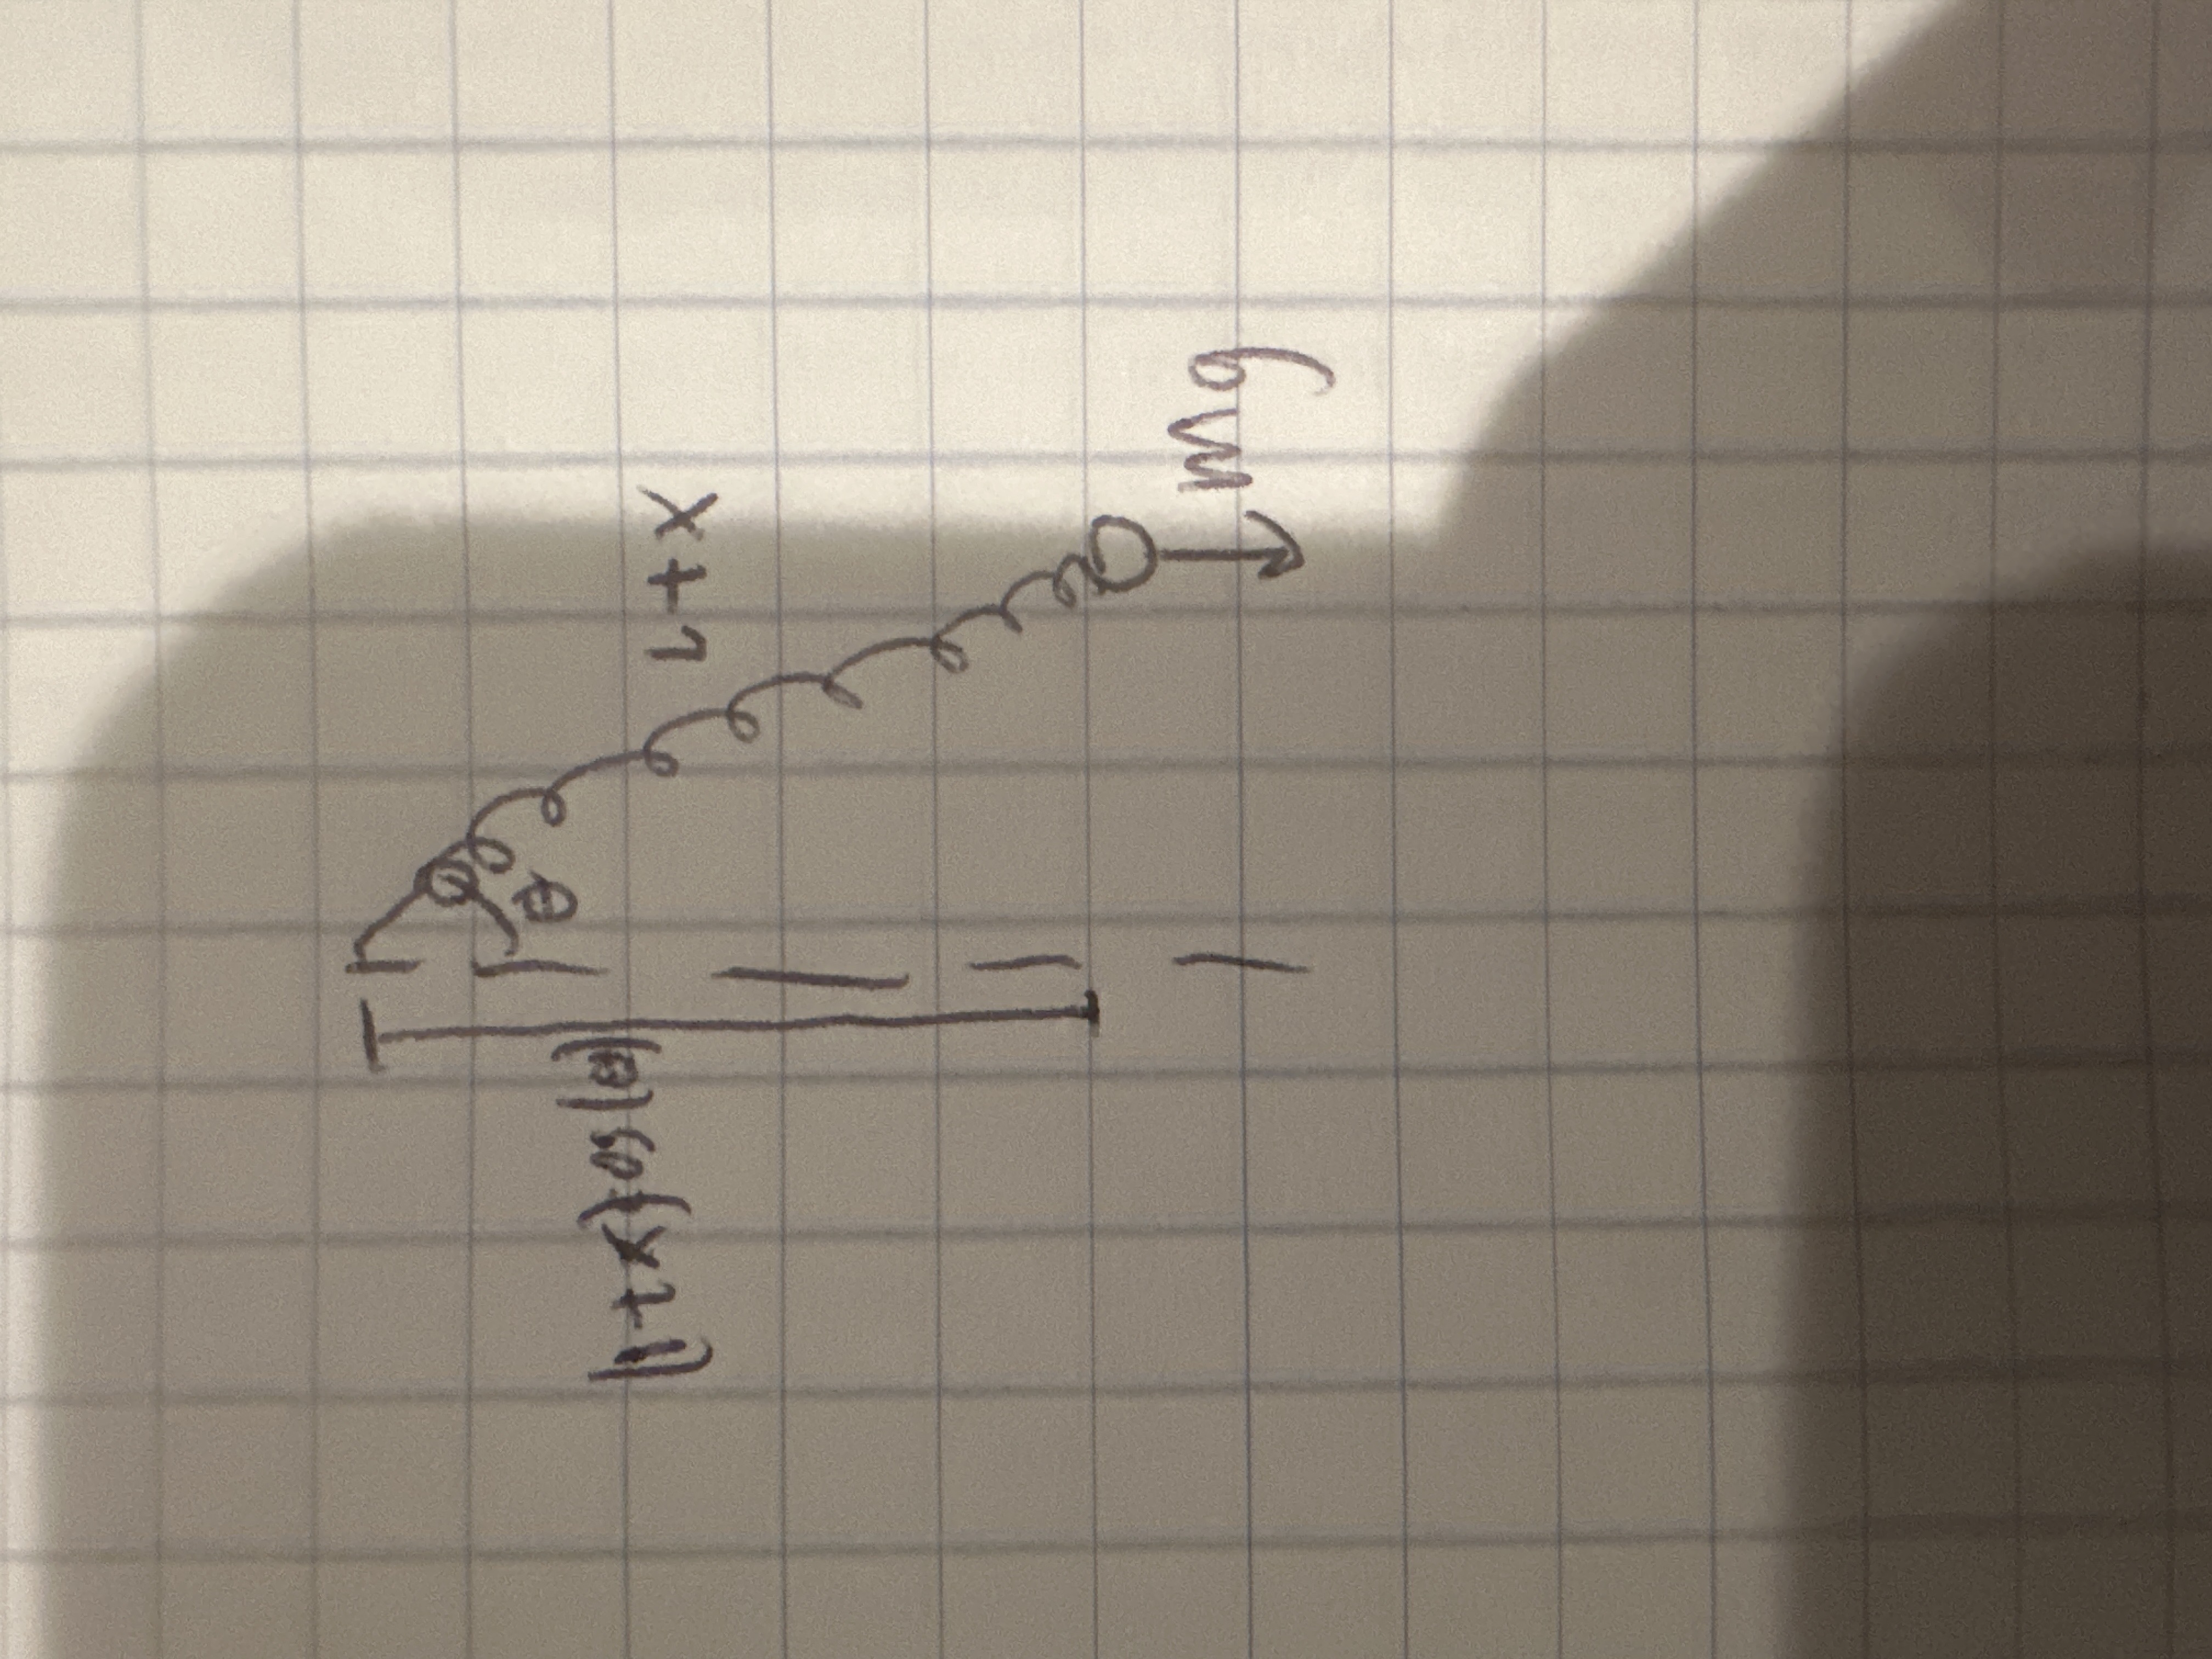 θ
(l+x)cos(θ)
L+x
mg